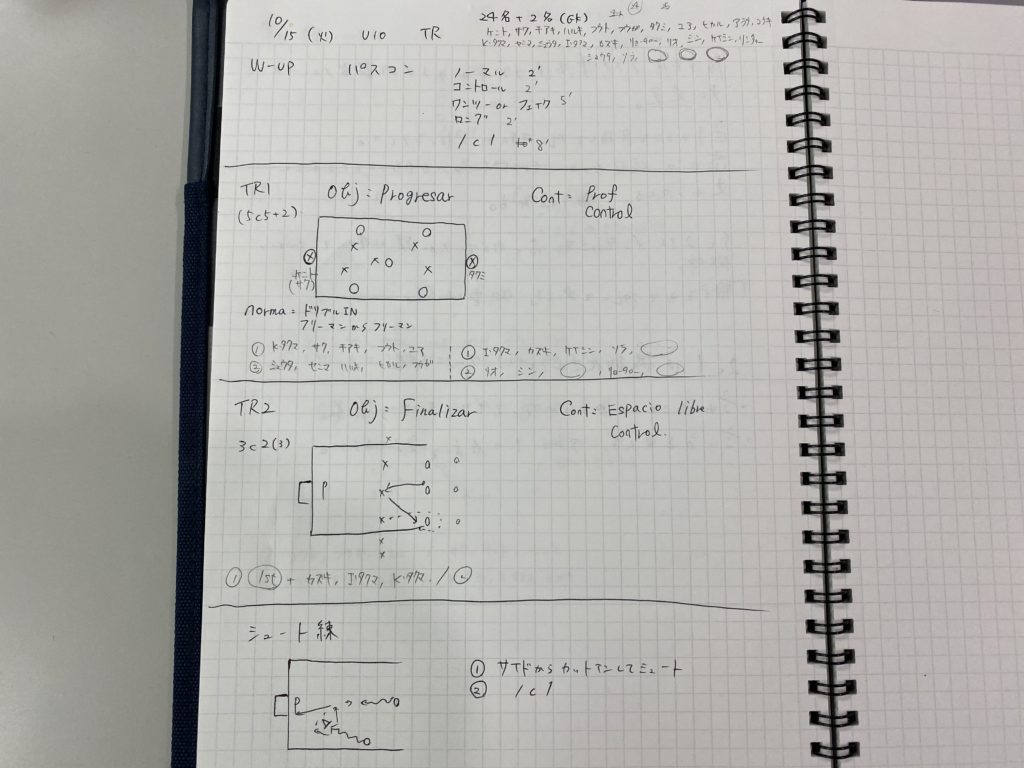 10/15 (火) U10 TR 24名 + 2名 (GK)
ケント, サク, チアキ, ハルキ, フウト, タクミ, ユア, ヒカル
K・タクマ, ゼニス, シュウタ, I・タクマ, カズキ, リオ, ミン, ケイシン
シュウタ, ソラ,
W-up パスコン ノーマル 2'
コントロール 2'
ワンツー or フェイク 5'
ロング 2'
1c1 8'
TR1 Obj: Progresar Cont: Prof
(5c5+2) Control
ケント タクミ
(サク)
norma: ドリブルIN
フリーマンからフリーマン
① K・タクマ, サク, チアキ, フウト, ユア ① I・タクマ, カズキ, ケイシン, ソラ,
② シュウタ, ゼニス, ハルキ, ヒカル, ② リオ, ミン,
TR2 Obj: Finalizar Cont: Espacio libre
3c2(3) Control.
P
① 1st + カズキ, I・タクマ, K・タクマ. /
シュート練
P
① サイドからカットインしてシュート
② 1c1